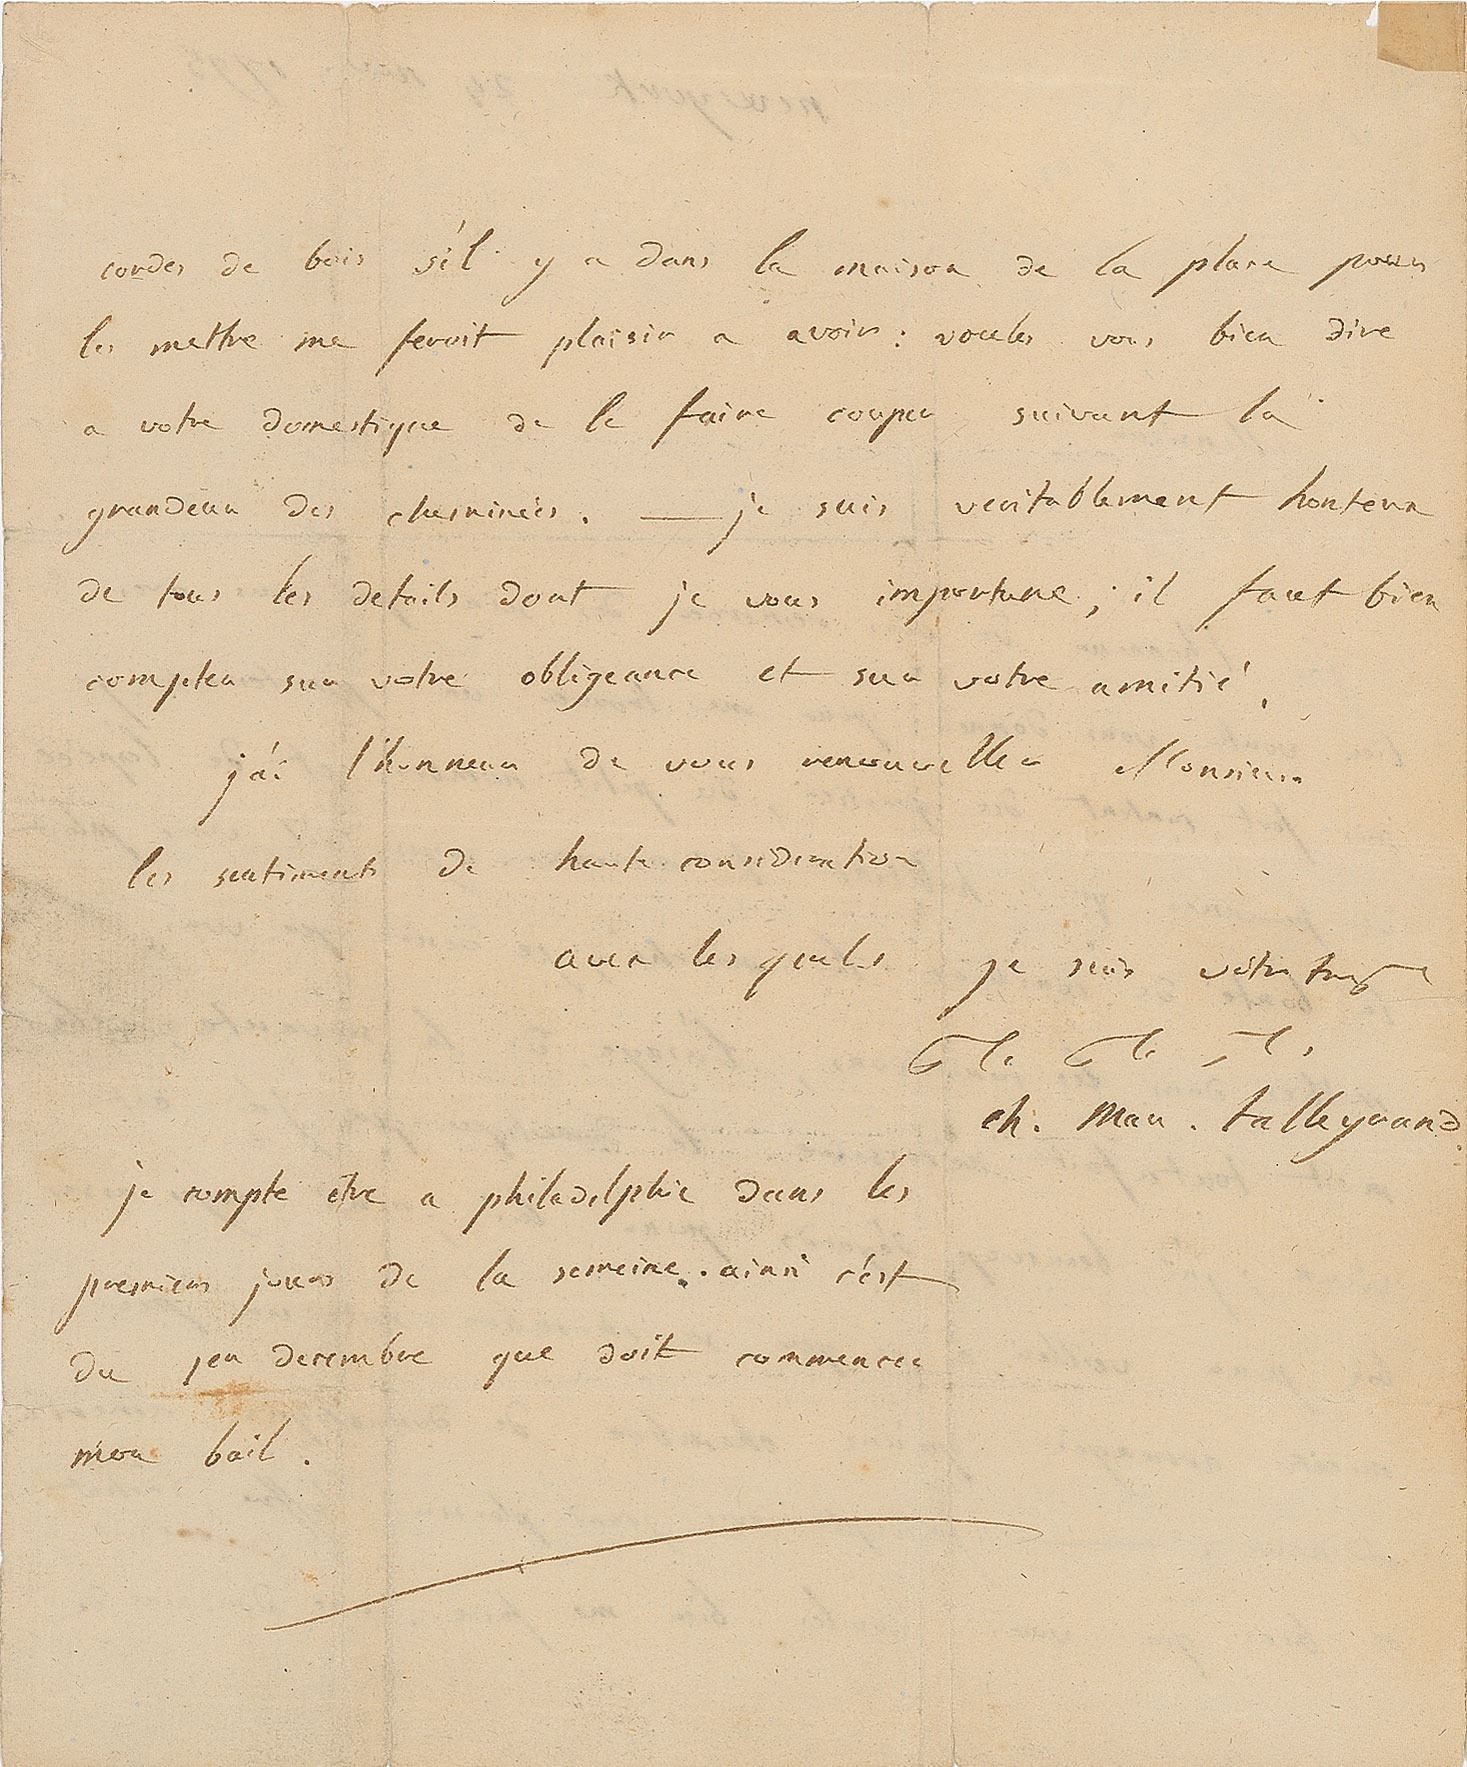 cordes de bois s'il y a dans la maison de la place pour
les mettre me feroit plaisir a avoir : voules vous bien dire
a votre domestique de le faire couper suivant la
grandeur des cheminées. — je suis veritablement honteux
de tous les details dont je vous importune ; il faut bien
compter sur votre obligeance et sur votre amitié.
j'ai l'honneur de vous renouveller Monsieur
les sentiments de haute consideration
avec les quels je suis votre
ch. Mau. talleyrand
je compte etre a philadelphie dans les
premiers jours de la semeine. ainsi c'est
du 1er decembre que doit commencer
mon bail.